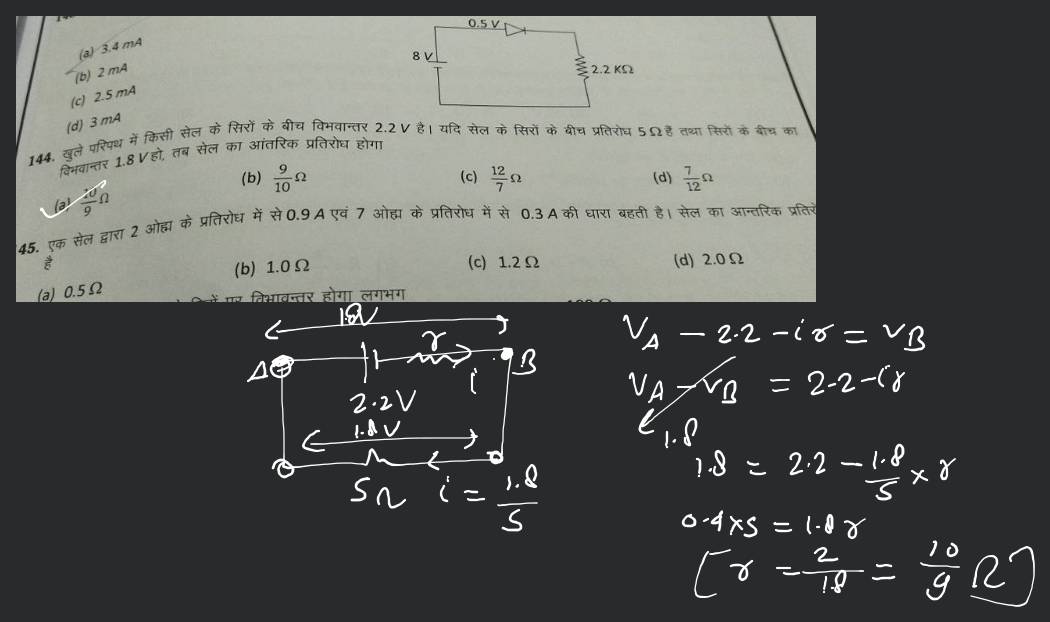 0.5 V
8 V
2.2 KΩ
(a) 3.4 mA
(b) 2 mA
(c) 2.5 mA
(d) 3 mA
144. खुले परिपथ में किसी सेल के सिरों के बीच विभवान्तर 2.2 V है। यदि सेल के सिरों के बीच प्रतिरोध 5 Ω है तथा सिरों के बीच का
विभवान्तर 1.8 V हो, तब सेल का आंतरिक प्रतिरोध होगा
(a) 10/9 Ω (b) 9/10 Ω (c) 12/7 Ω (d) 7/12 Ω
45. एक सेल द्वारा 2 ओह्म के प्रतिरोध में से 0.9 A एवं 7 ओह्म के प्रतिरोध में से 0.3 A की धारा बहती है। सेल का आन्तरिक
है
(a) 0.5 Ω (b) 1.0 Ω (c) 1.2 Ω (d) 2.0 Ω
पर विभवान्तर होगा लगभग
1.8V
A r B
i
2.2V
1.8V
5Ω i = 1.8/5
VA - 2.2 - ir = VB
VA - VB = 2.2 - ir
1.8
1.8 = 2.2 - 1.8/5 × r
0.4×5 = 1.8 r
[r = 2/1.8 = 10/9 Ω]